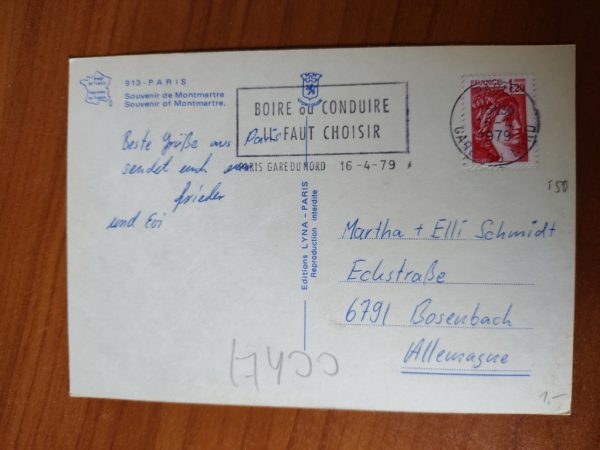 913-PARIS
Souvenir de Montmartre
Souvenir of Montmartre.
BOIRE OU CONDUIRE
IL FAUT CHOISIR
PARIS GARE DU NORD 16-4-79
FRANCE 1,20
1979
Beste Grüße aus Paris
sendet euch
Frieder
und Evi
Editions LYNA - PARIS
Reproduction interdite
Martha + Elli Schmidt
Eckstraße
6791 Bosenbach
Allemagne
150
1,-